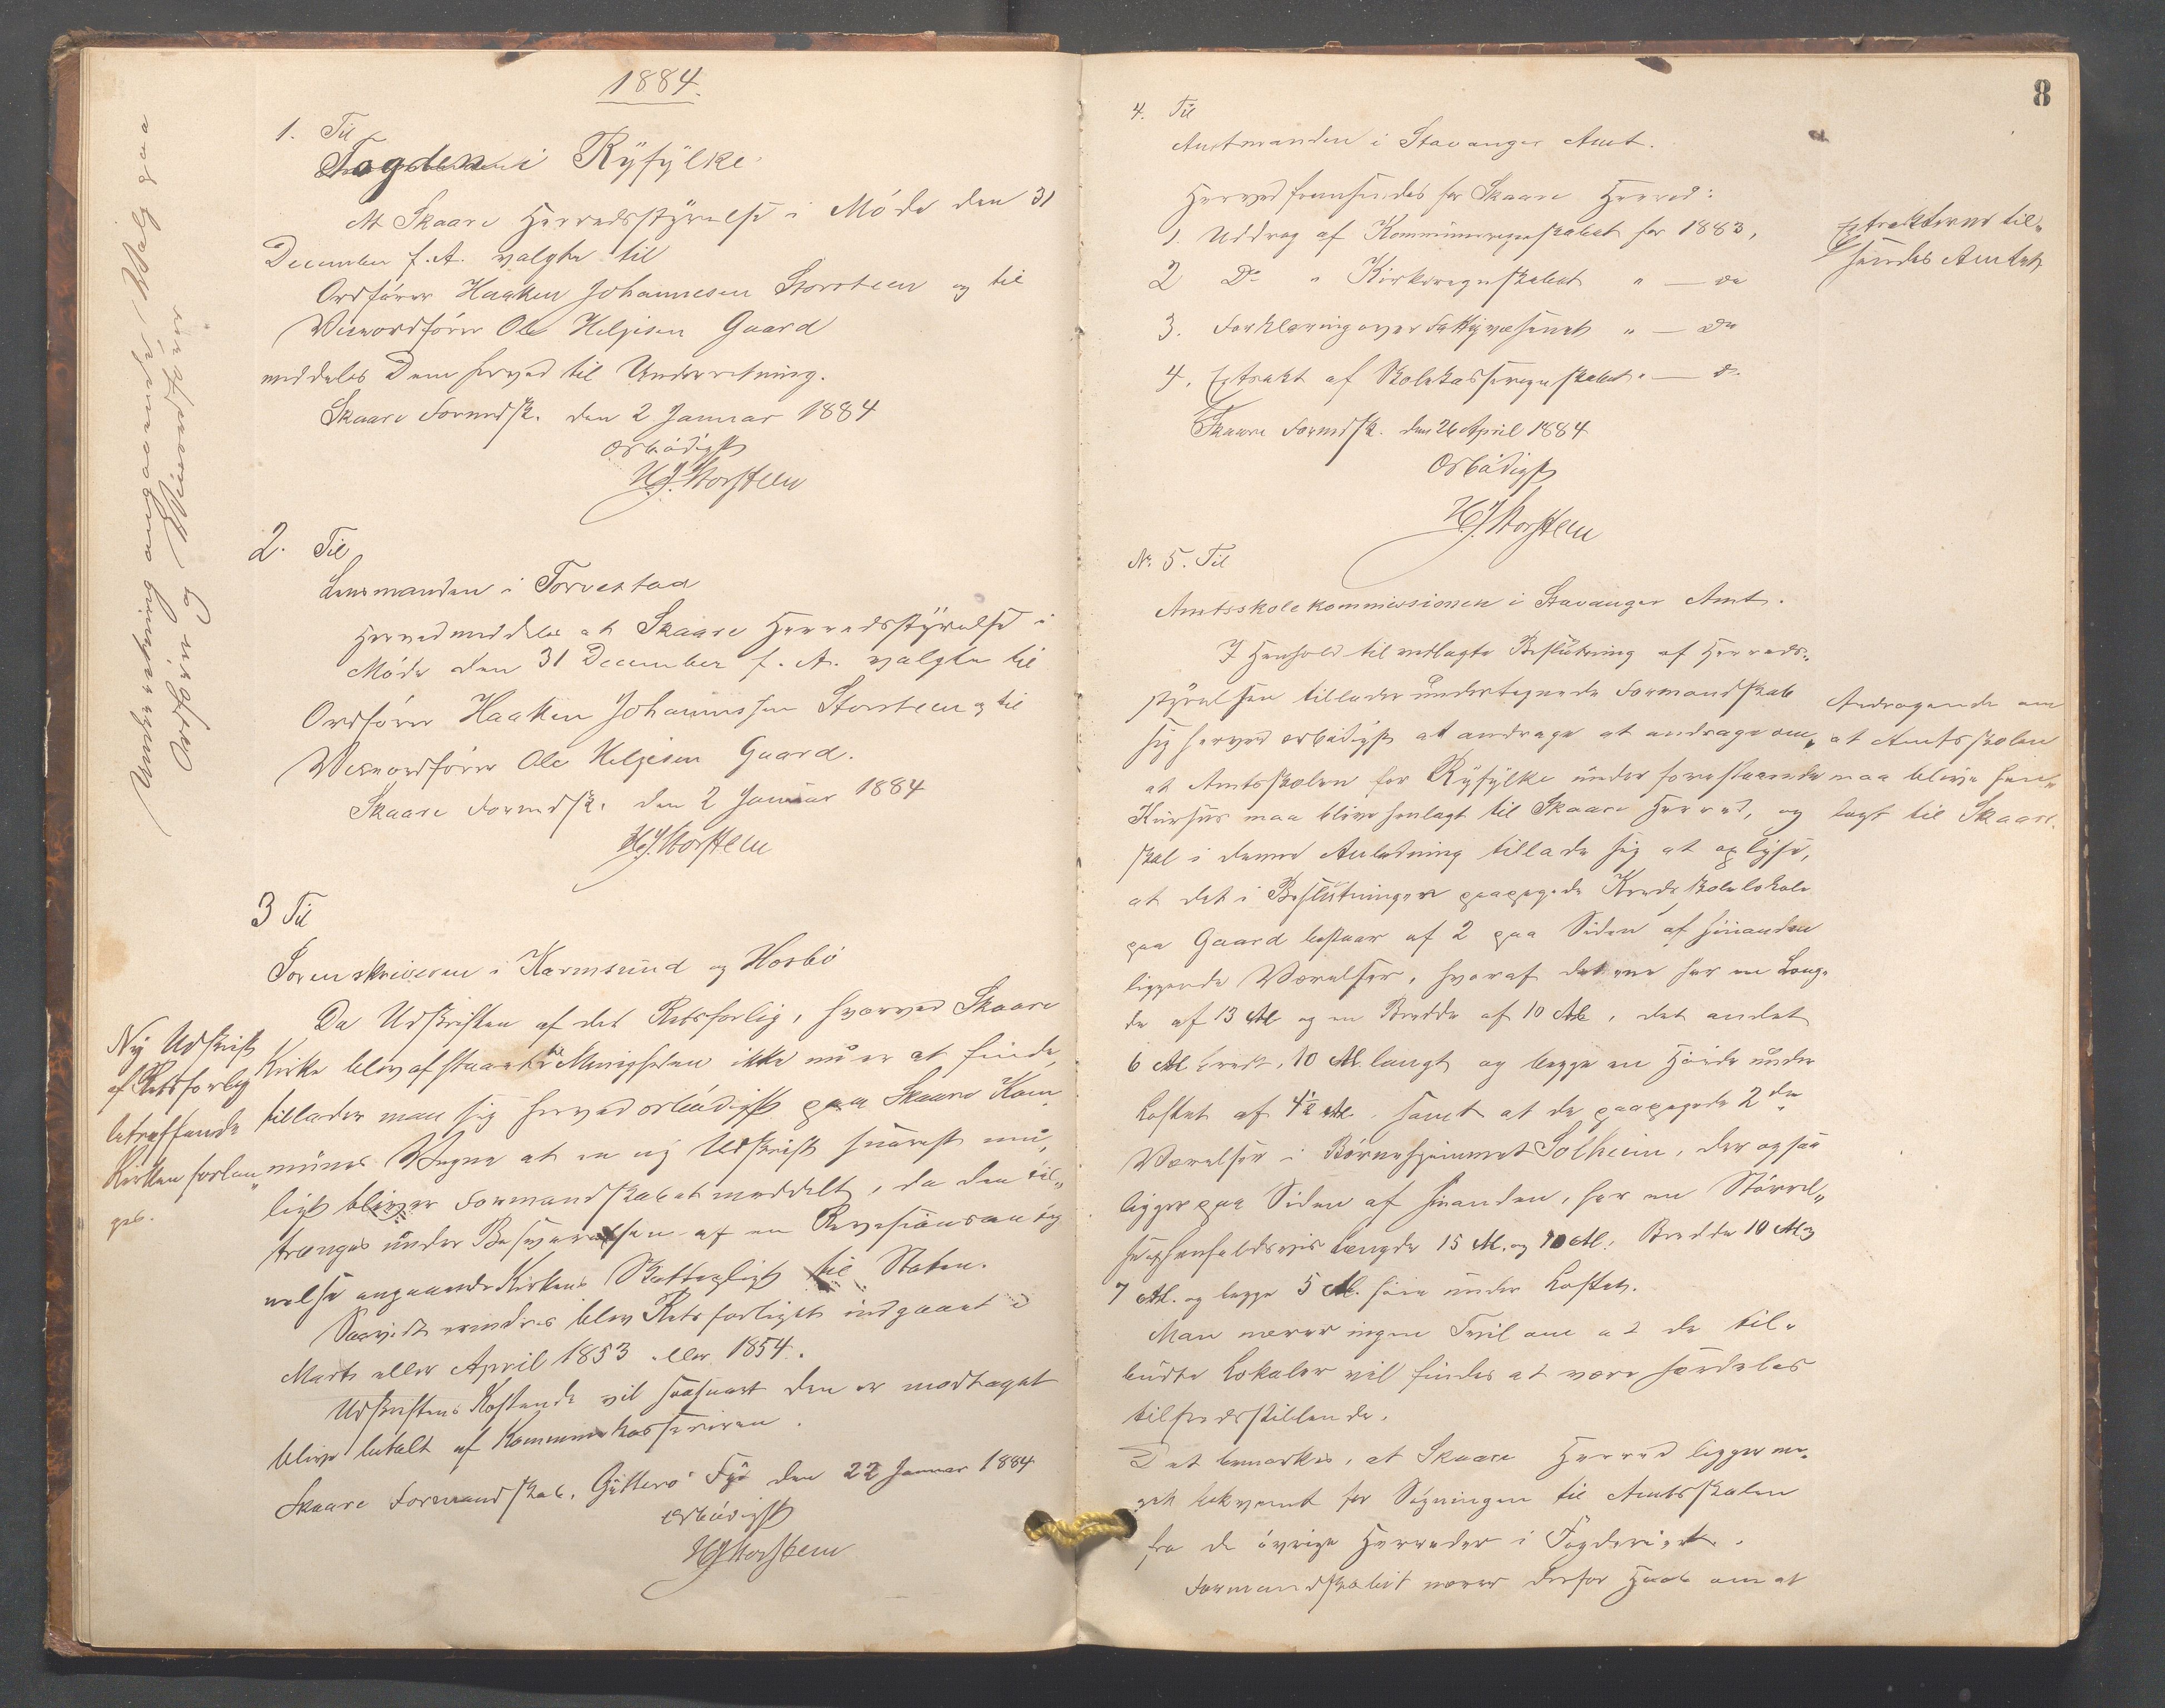 1884.
Underretning angaaende Valg paa
Ordfører og Viceordfører
1. Til
Fogden i Ryfylke
At Skaare Herredsstyrelse i Møde den 31
December f. A. valgte til
Ordfører Haaken Johannesen Storsteen og til
Viceordfører Ole Helgesen Gaard
meddeles Dem herved til Underretning.
Skaare Formdsk. den 2 Januar 1884
Ærbødigst
H.J. Storsteen
2. Til
Lensmanden i Torvestad
Herved meddeles at Skaare Herredsstyrelse i
Møde den 31 December f. A. valgte til
Ordfører Haaken Johannessen Storsteen og til
Viceordfører Ole Helgesen Gaard.
Skaare Formdsk. den 2 Januar 1884
H.J. Storsteen
3 Til
Sorenskriveren i Karmsund og Hesbø
Da Udskriften af det Retsforlig, hvorved Skaare
Kirke blev afstaaet til Menigheden ikke nu er at finde,
tillader man sig herved ærbødigst paa Skaare Kom-
munes Vegne at en ny Udskrift snarest mu-
ligt bliver Formandskabet meddelt, da den til-
trænges under Besvarelsen af en Revisionsanteg
nelse angaaende Kirkens Skattepligt til Staten.
Saavidt erindres blev Retsforliget indgaaet i
Marts eller April 1853 eller 1854.
Udskriftens Kostende vil saasnart den er modtaget
blive betalt af Kommunekassereren.
Skaare Formandskab, Gitterø Fyr den 22 Januar 1884
Ærbødigst
H.J. Storsteen
Ny Udskrift
af Retsforlig
betreffende
Kirken forlan-
ges.
8
4. Til
Amtmanden i Stavanger Amt.
Herved fremsendes for Skaare Herred:
1. Uddrag af Kommuneregnskabet for 1883,
2 Do " Kirkeregnskabet " — do
3. Forklaring over Fattigvæsenet " — do
4. Extrakt af Skolekasseregnskabet " — do
Skaare Formdsk. den 26 April 1884
Ærbødigst
H.J. Storsteen
Extrakterne til-
sendes Amtet
No. 5. Til
Amtsskolekommissionen i Stavanger Amt.
I Henhold til vedlagte Beslutning af Herreds-
styrelsen tillader undertegnede Formandskab
sig herved ærbødigst at andrage at andrage om,
at Amtsskolen for Ryfylke under forestaaende
Kursus maa blive henlagt til Skaare Herred, og
skal i denne Anledning tillade sig at oplyse,
at det i Beslutningen paapegede Kredsskolelokale
paa Gaard bestaar af 2 paa Siden af hinanden
liggende Værelser, hvoraf det ene har en Læng-
de af 13 Al og en Bredde af 10 Al, det andet
6 Al. bredt, 10 Al. langt og begge en Høide under
Loftet af 4½ Al. samt at de paapegede 2de
Værelser i Børnehjemmet Solheim, der ogsaa
ligger paa Siden af hinanden, har en Størrel-
se henholdsvis Længde 15 Al. og 10 Al. Bredde 10 Al og
7 Al. og begge 5 Al. høie under Loftet.
Man nærer ingen Tvil om at de til-
budte Lokaler vil findes at være særdeles
tilfredsstillende.
Det bemærkes, at Skaare Herred ligger me-
get bekvemt for Søgningen til Amtsskolen
fra de øvrige Herreder i Fogderiet.
Formandskabet nærer derfor Haab om at
Andragende om
at Amtsskolen
maa blive hen-
lagt til Skaare.